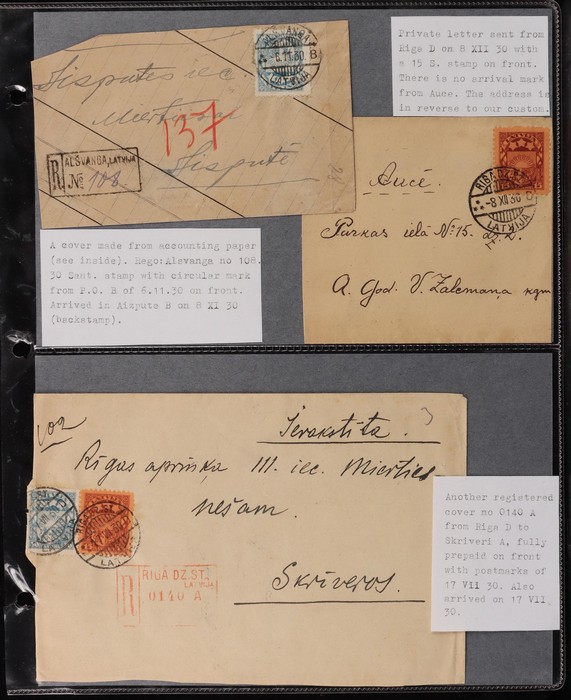 Private letter sent from
Riga D on 8 XII 30 with
a 15 S. stamp on front.
There is no arrival mark
from Auce. The address is
in reverse to our custom.
B
6.11.30
LATVIJA
Aisputes iec.
137
Aisputē
R ALŠVANGA, LATVIJA
№ 108
A cover made from accounting paper
(see inside). Rego:Alsvanga no 108.
30 Sant. stamp with circular mark
from P.O. B of 6.11.30 on front.
Arrived in Aizpute B on 8 XI 30
(backstamp).
-8 XII 30
LATVIJA
Aucē.
Parkas ielā № 15. dz. 2.
A. God. V. Zalemana kgm
Ierakstīta.
3
Rīgas apriņķa III. iec. Mierties
nešam.
Skrīveros.
R RIGA DZ.ST.
LATVIJA
0140 A
Another registered
cover no 0140 A
from Riga D to
Skriveri A, fully
prepaid on front
with postmarke of
17 VII 30. Also
arrived on 17 VII
30.